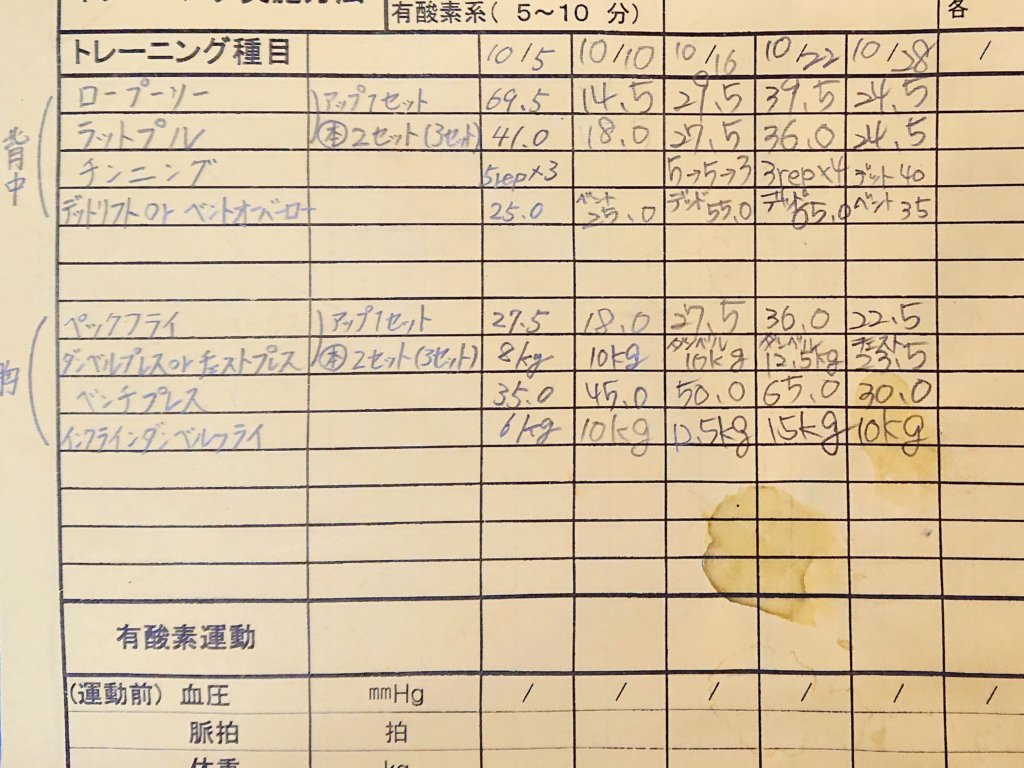 有酸素系( 5～10 分) 各
トレーニング種目 10/5 10/10 10/16 10/22 10/28 /
背中
ロープーリー アップ1セット 69.5 14.5 29.5 39.5 24.5
ラットプル ㊍2セット(3セット) 41.0 18.0 27.5 36.0 24.5
チンニング 5rep×3 5→5→3 3rep×4 デット40
デットリフト or ベントオーバーロー 25.0 ベント25.0 デッド55.0 デッド65.0 ベント35
胸
ペックフライ アップ1セット 27.5 18.0 27.5 36.0 22.5
ダンベルプレスorチェストプレス ㊍2セット(3セット) 8kg 10kg ダンベル10kg ダンベル12.5kg チェスト23.5
ベンチプレス 35.0 45.0 50.0 65.0 30.0
インクラインダンベルフライ 6kg 10kg 12.5kg 15kg 10kg
有酸素運動
(運動前) 血圧 mmHg / / / / / /
脈拍 拍
体重 kg